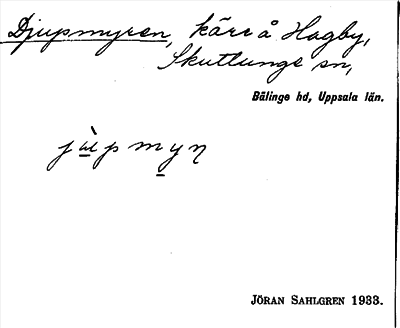 Djupmyren, kärr å Hagby,
Skuttunge sn,
Bälinge hd, Uppsala län.
jùpmyn
JÖRAN SAHLGREN 1933.